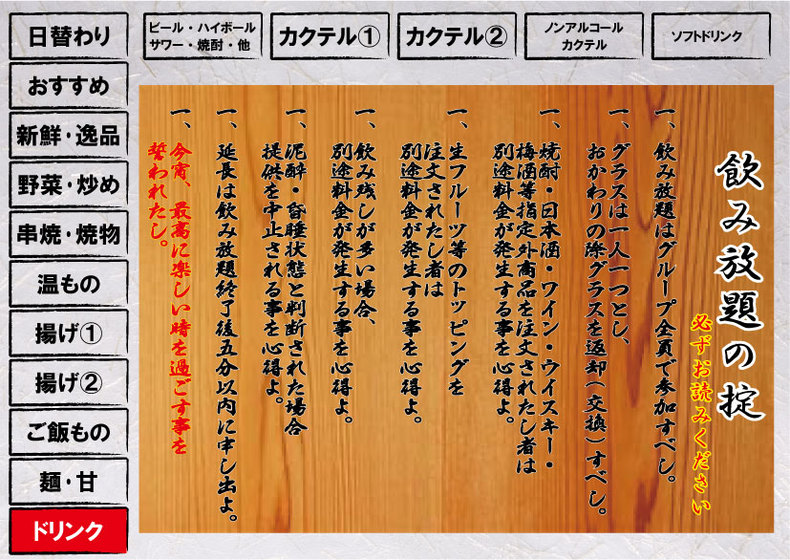 日替わり
おすすめ
新鮮・逸品
野菜・炒め
串焼・焼物
温もの
揚げ①
揚げ②
ご飯もの
麺・甘
ドリンク
ビール・ハイボール
サワー・焼酎・他
カクテル①
カクテル②
ノンアルコール
カクテル
ソフトドリンク
飲み放題の掟
必ずお読みください
一、飲み放題はグループ全員で参加すべし。
一、グラスは一人一つとし、
おかわりの際グラスを返却(交換)すべし。
一、焼酎・日本酒・ワイン・ウイスキー・
梅酒等指定外商品を注文されたし者は
別途料金が発生する事を心得よ。
一、生フルーツ等のトッピングを
注文されたし者は
別途料金が発生する事を心得よ。
一、飲み残しが多い場合、
別途料金が発生する事を心得よ。
一、泥酔・昏睡状態と判断された場合
提供を中止される事を心得よ。
一、延長は飲み放題終了後五分以内に申し出よ。
一、今宵、最高に楽しい時を過ごす事を
誓われたし。